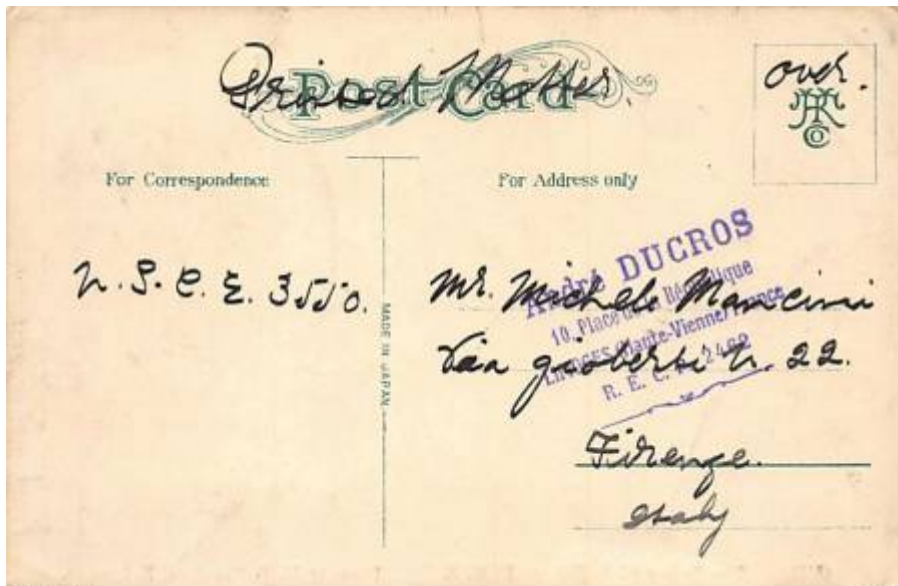 Printed Matter.
Post Card
over.
For Correspondence
For Address only
N. S. C. E. 3550.
MADE IN JAPAN
André DUCROS
10, Place de la République
LIMOGES (Haute-Vienne) France
R. E. C. 2462
Mr. Michele Mancini
Via gioberti N. 22.
Firenze.
Italy